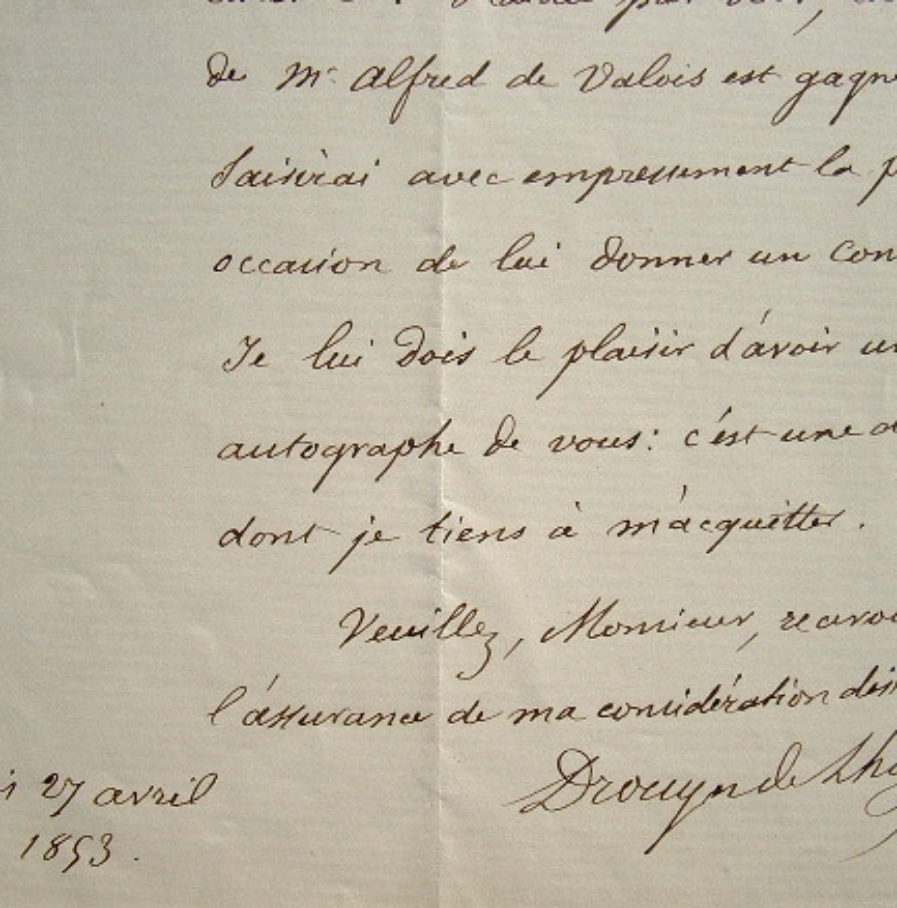 de Mr. Alfred de Valois est gagn
Saisirai avec empressement la p
occasion de lui donner un con
Je lui dois le plaisir d'avoir un
autographe de vous: c'est une d
dont je tiens à m'acquitter.
Veuillez, Monsieur, recevoi
l'assurance de ma considération dis
27 avril
1853.
Drouyn de Lhu